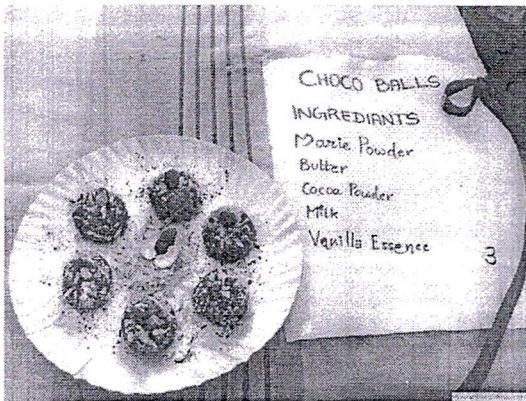 CHOCO BALLS
INGREDIANTS
Marie Powder
Butter
Cocoa Powder
Milk
Vanilla Essence
3